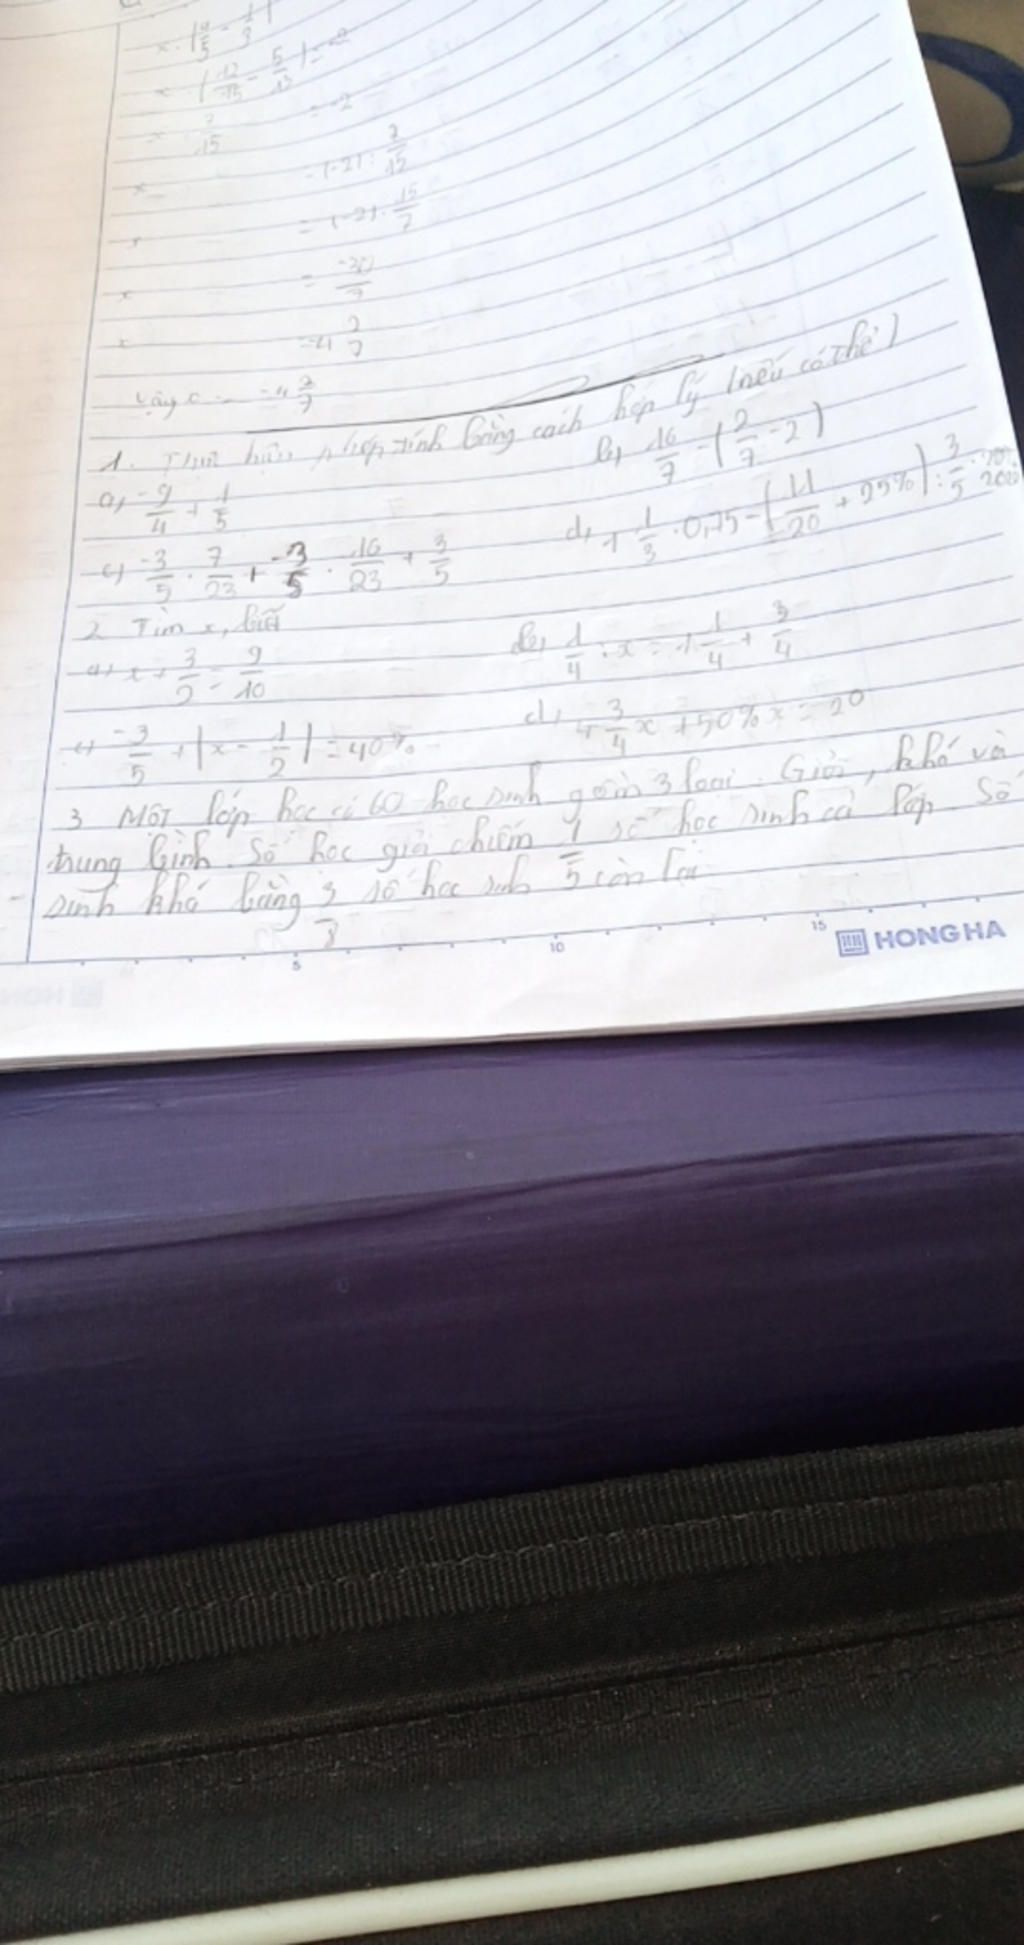 x · (4/5 - 1/3)
x · (12/15 - 5/15) = -2
x · 7/15 = -2
x = (-2) : 7/15
x = (-2) · 15/7
x = -30/7
x = -4 2/7
Vậy x = -4 2/7
1. Thực hiện phép tính bằng cách hợp lý (nếu có thể)
a, -9/4 + 1/5 b, 16/7 - (2/7 - 2)
c, -3/5 · 7/23 + -3/5 · 16/23 + 3/5 d, 1 1/3 · 0,75 - (11/20 + 25%) : 3/5
2 Tìm x, biết
a, x + 3/2 = 9/10 b, 1/4 : x = 1 1/4 + 3/4
c, -3/5 + |x - 1/2| = 40% d, 4 3/4 x + 50% x = 20
3 Một lớp học có 60 học sinh gồm 3 loại. Giỏi, khá và
trung bình. Số học giỏi chiếm 1/5 số học sinh cả lớp Số
sinh khá bằng 3 số học sinh còn lại
5 10 15 HONG HA